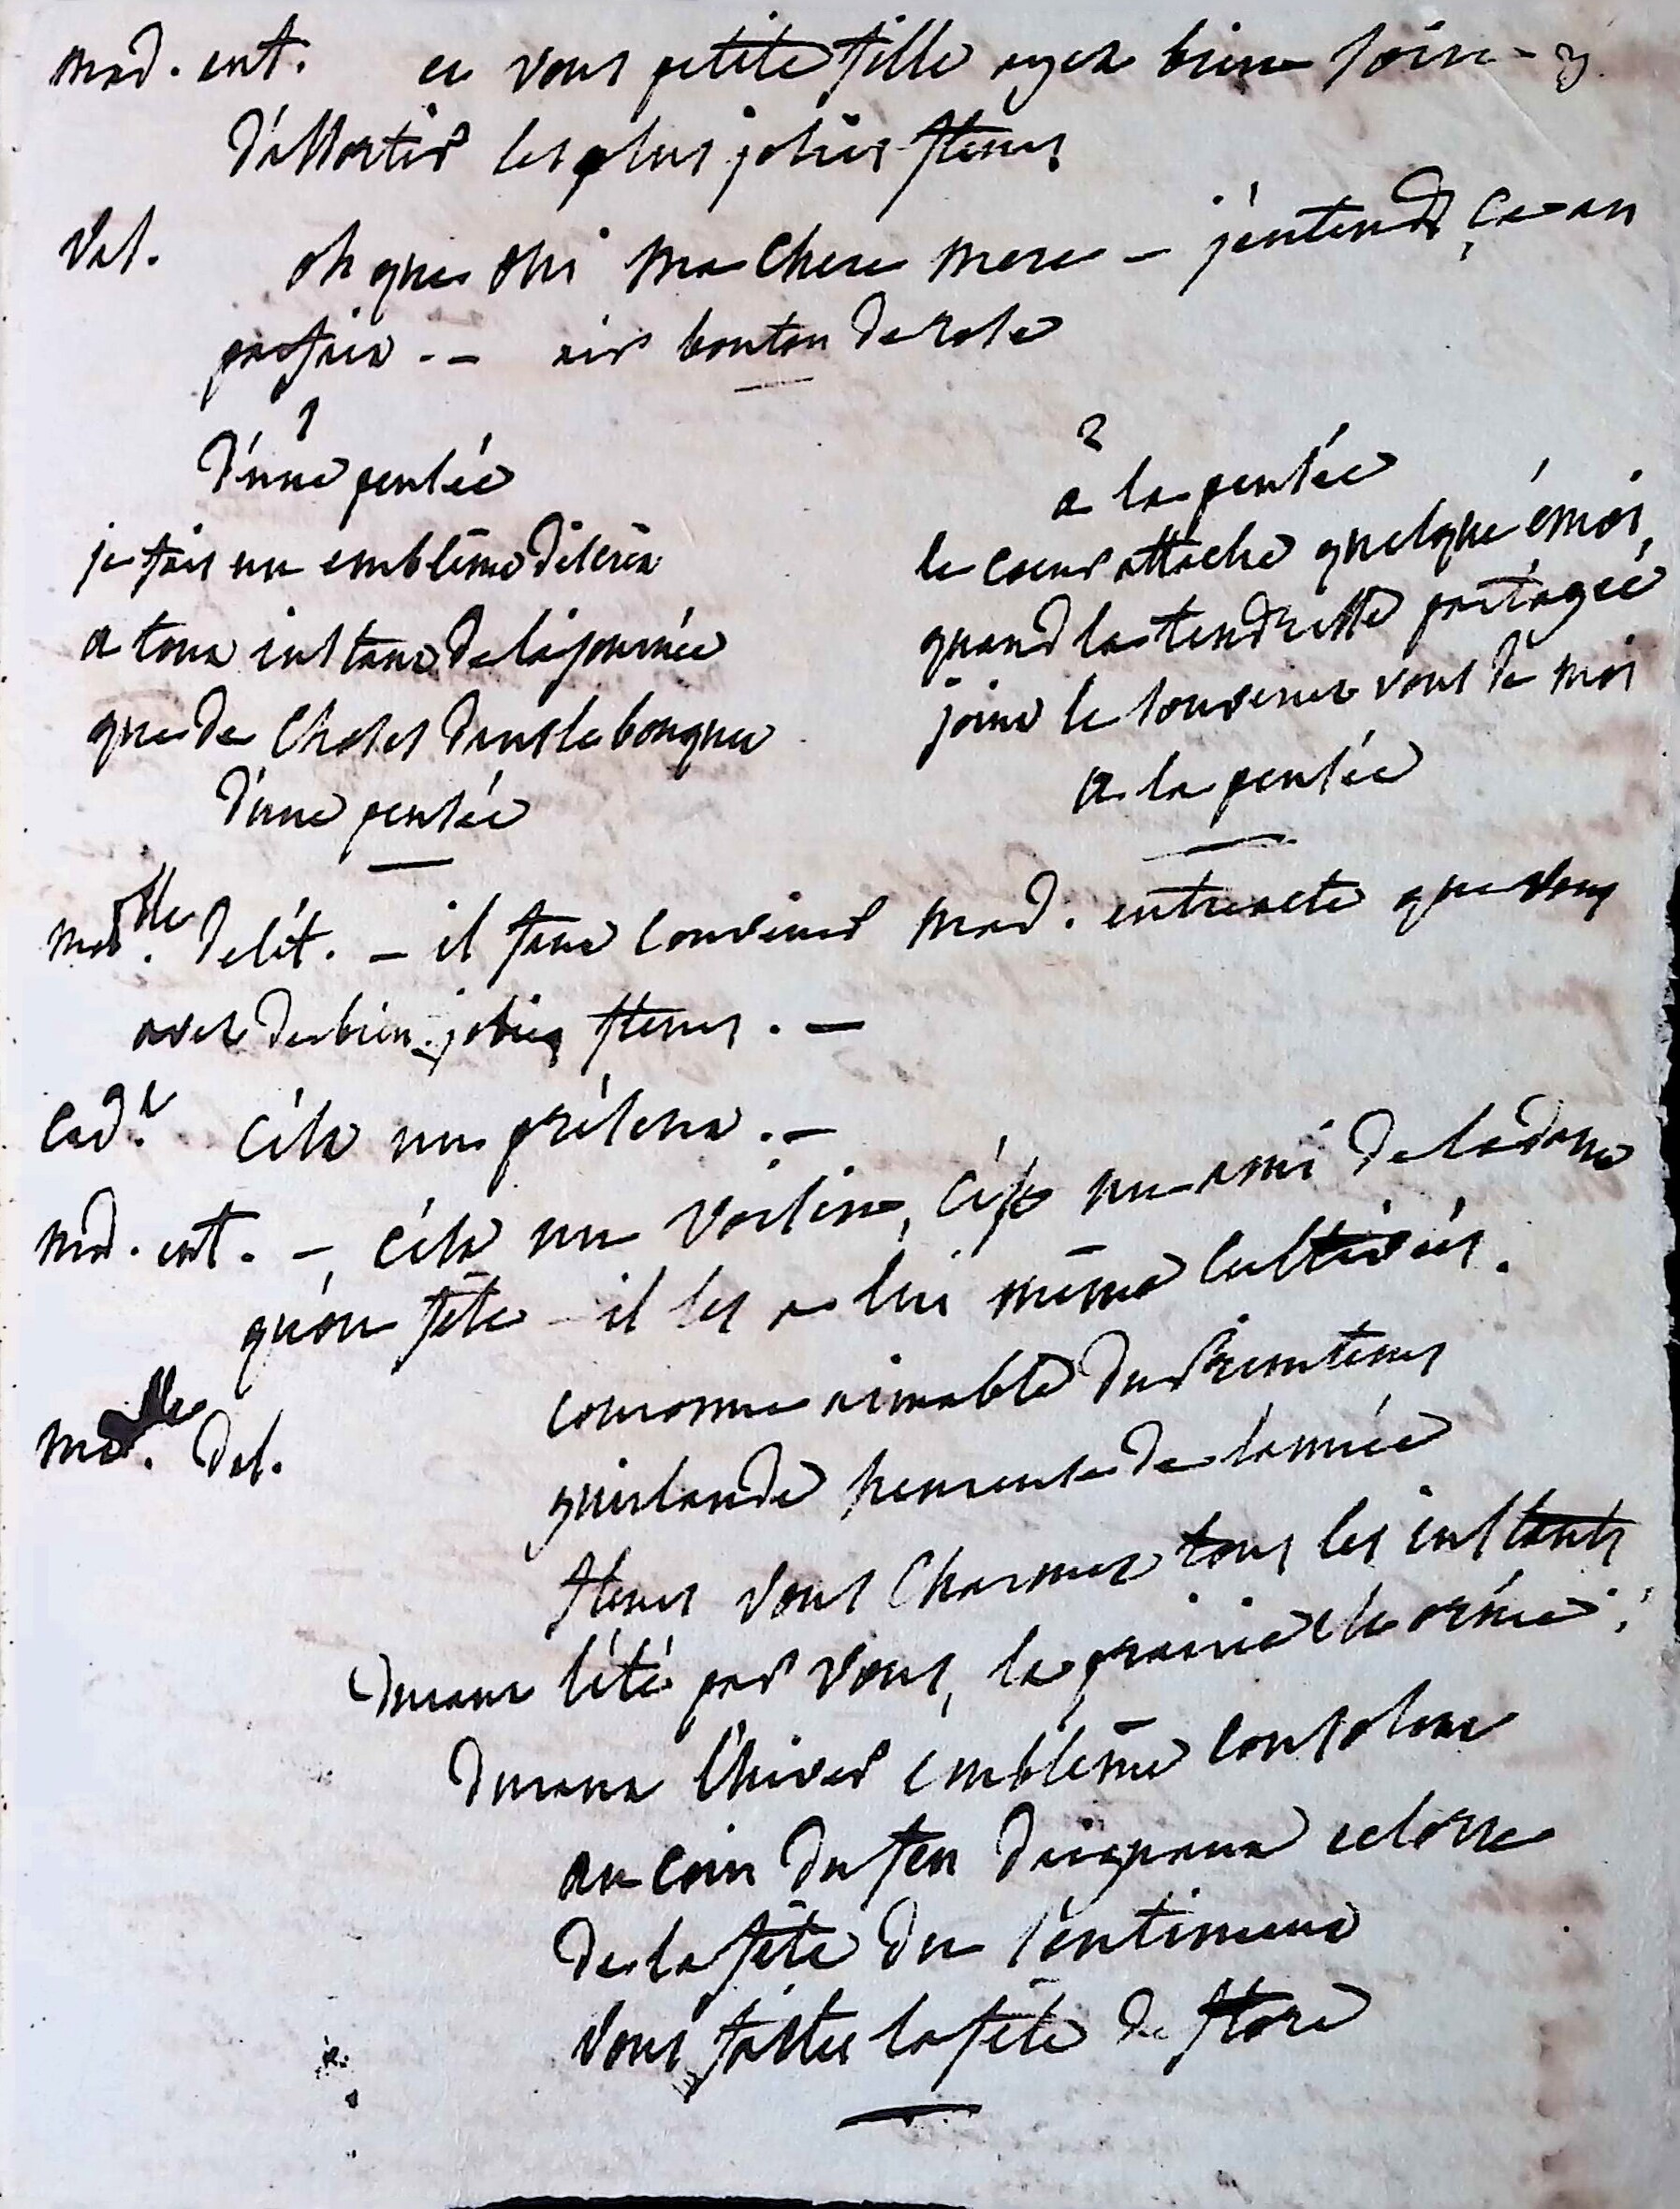 mad. ent. et vous petite fille ayez bien soin
d'assortir les plus jolies fleurs
Val. oh que oui ma chere mere - j'entends ça au
parfait. - air bouton de rose
1
d'une pensée
je fais un emblême discret
a tout instant de la journée
que de choses dans le bouquet
d'une pensée
2
a la pensée
le coeur attache quelqu'émoi,
quand la tendresse partagée
joint le souvenez vous de moi
a la pensée
Mad.lle delit. - il faut convenir mad. entreacte que vous
avez de bien jolies fleurs. -
Cad.t c'est un présent. -
Md. ent. - c'est un voisin, c'est un ami de la dame
qu'on fête - il les a lui même cultivées.
Mad.lle Del. couronne aimable du Printems
guirlande heureuse de l'année
fleurs vous charmez tous les instants
durant l'été par vous, la prairie est ornée;
durant l'hiver emblême consolant
au coin du feu daignant eclorre
de la fête du sentiment
vous faites la fête de flore